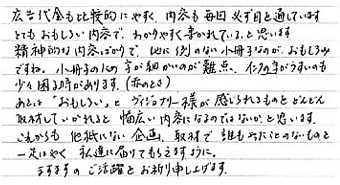 広告代金も比較的にやすく、内容も毎回必ず目を通しています
とてもおもしろい内容で、わかりやすく書かれている、と思います
精神的な内容ばかりで、他に例のない小冊子なのが、おもしろみ
ですね。小冊子のため字が細かいのが難点、印刷がうすいのも
少々困る時があります。(赤のとき)
あとは"おもしろい"と 様が感じられるものをどんどん
取材していかれると幅広い内容になるのではないか、と思います。
これからも他誌にない企画、取材で誰もやったことのないものを
一足はやく私達に届けてもらえますように。
ますますのご活躍とお祈り申し上げます。